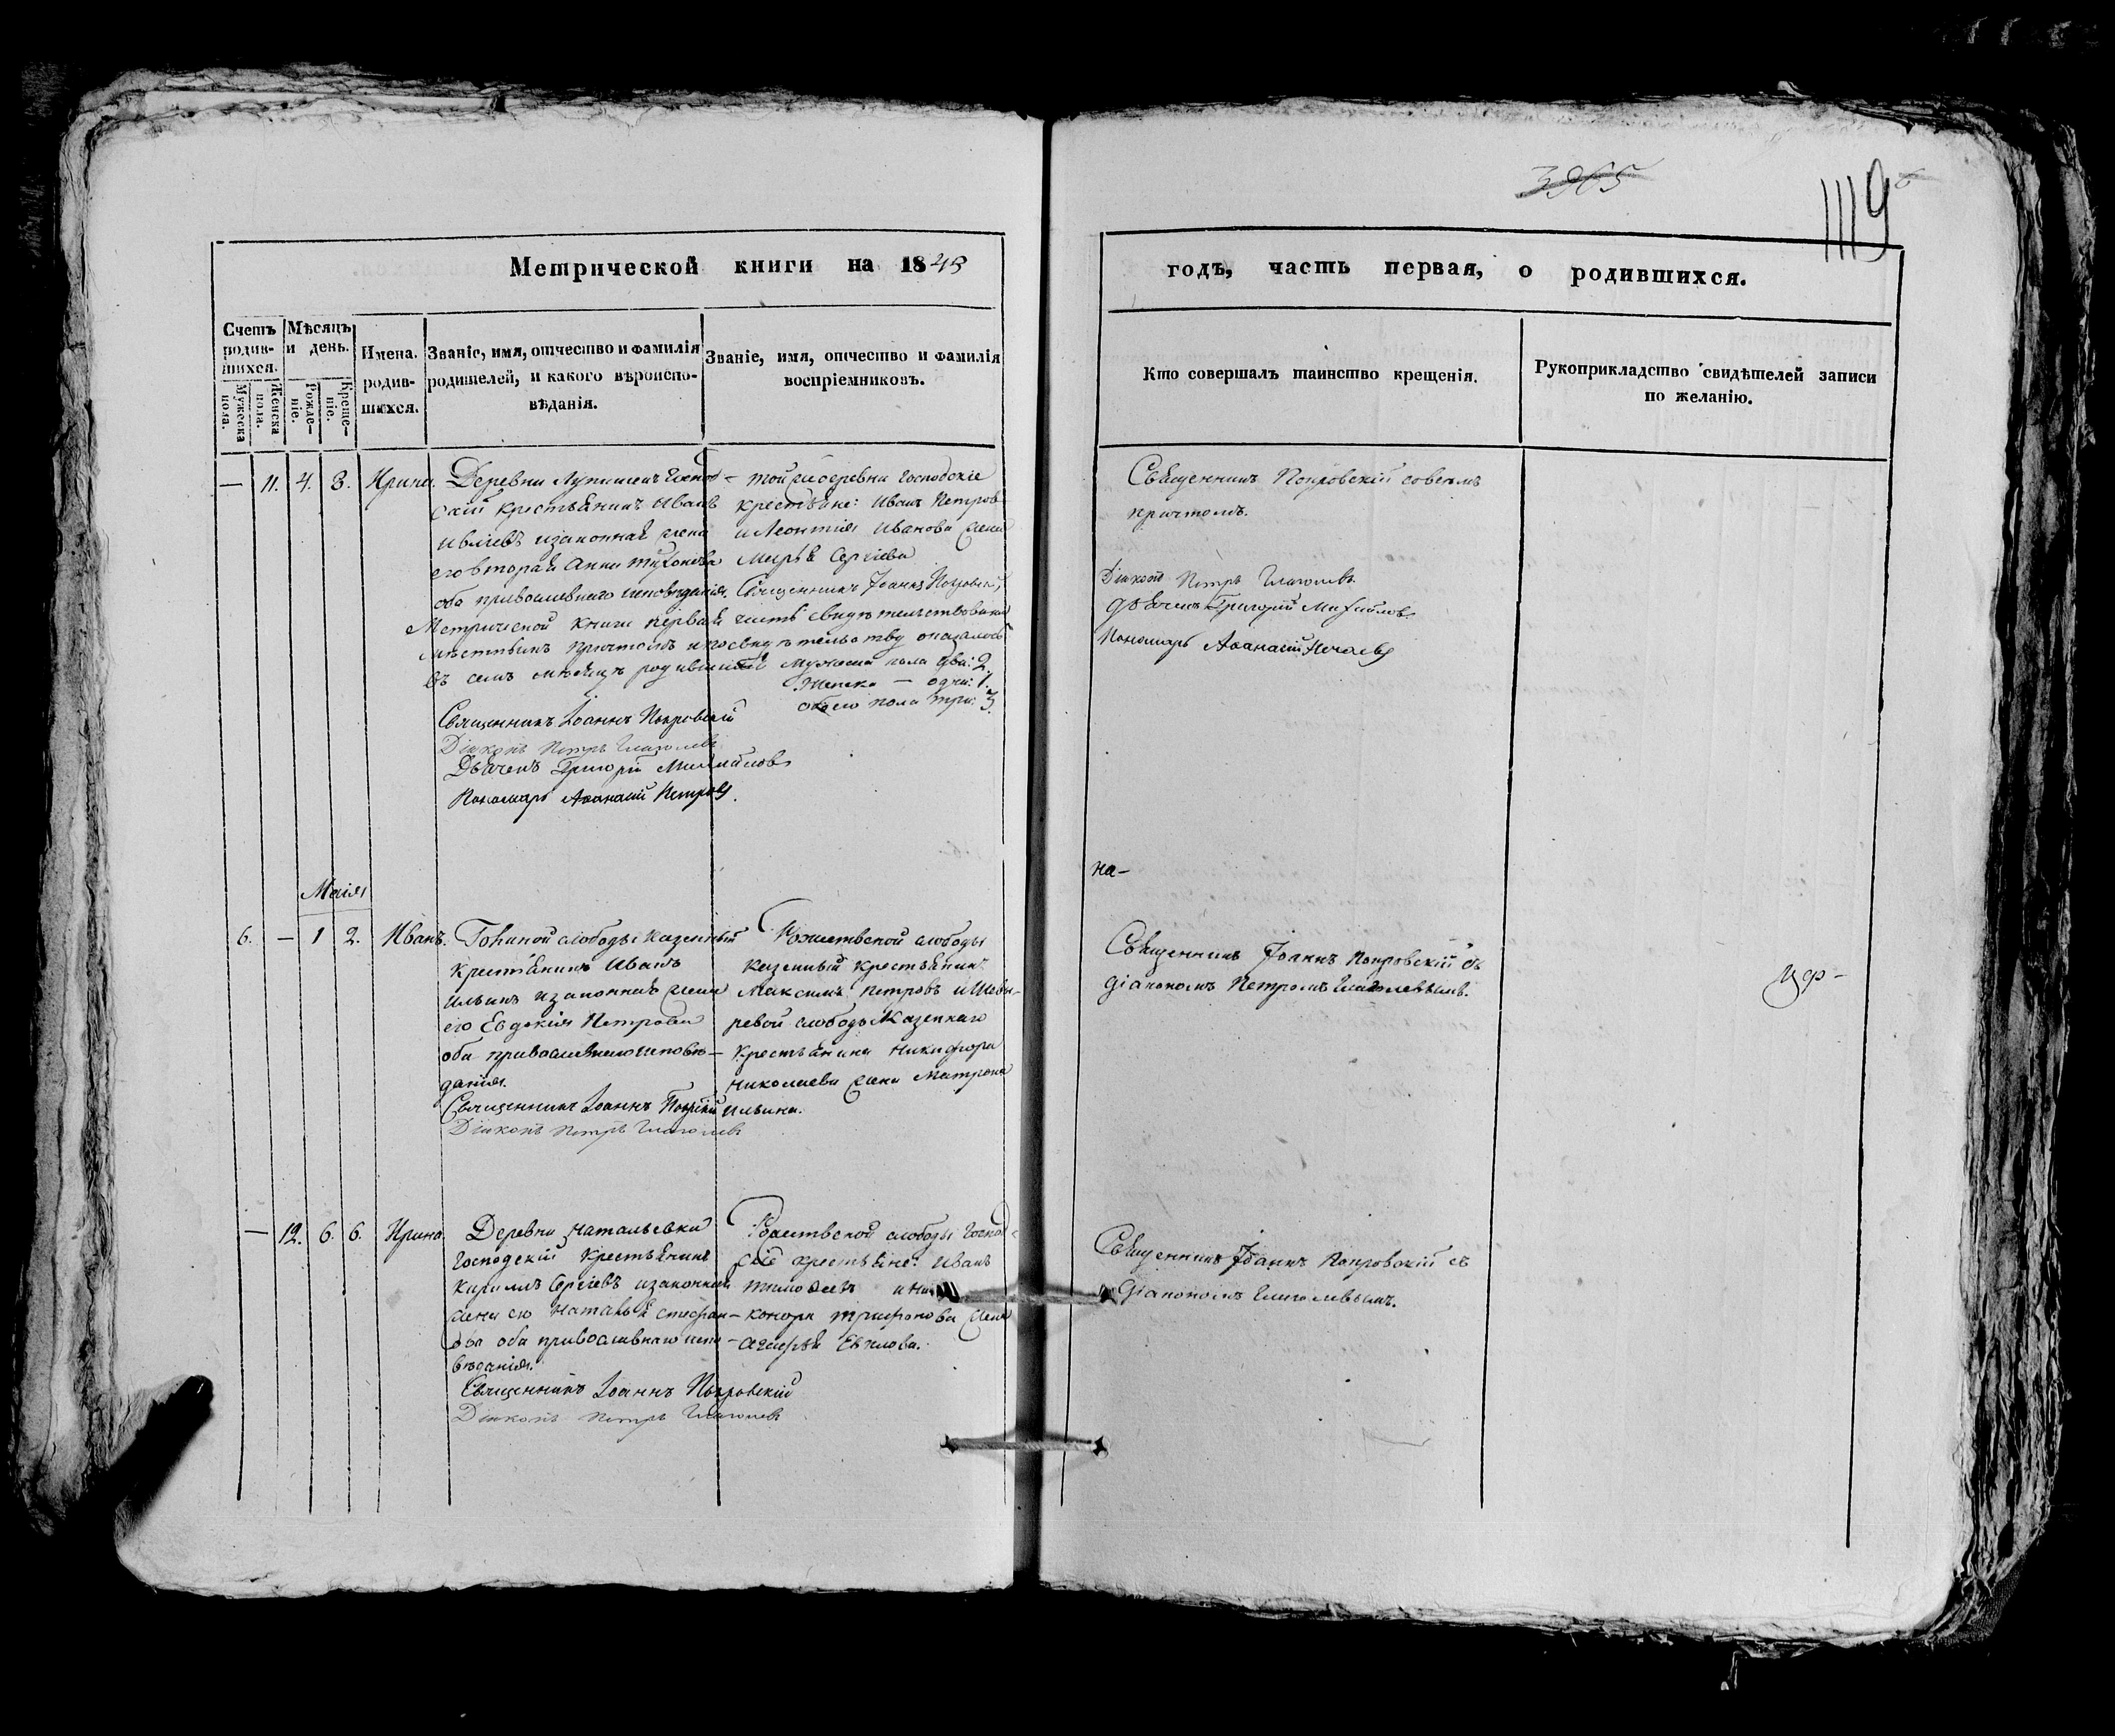 3965
1119
Метрической книги на 1843
годъ, часть первая, о родившихся.
Счетъ родив-шихся.
Мѣсяцъ и день.
Мужеска пола.
Женска пола.
Рожде-ніе.
Креще-ніе.
Имена. родив-шихся.
Званіе, имя, отчество и фамилія
родителей, и какого вѣроиспо-
вѣданія.
Званіе, имя, отчество и фамилія
воспріемниковъ.
Кто совершалъ таинство крещенія.
Рукоприкладство свидѣтелей записи
по желанію.
— 11. 4. 8. Ирина.
Деревни
скій крестьянинъ Иванъ
изаконная жена
его вторая Анна Тихонова
оба православнаго исповѣданія
той же деревни господскіе
крестьяне: Иванъ Петров
и Леонтія Иванова жена
Марья Сергіева
Священникъ Іоаннъ Покровскій
Метрической книги первая часть свидѣтельствована
мѣстнымъ причтомъ и по свидѣтельству оказалось
въ семъ мѣсяцѣ родившихся мужеска пола два: 2.
Женска — одна: 1.
обоего пола три: 3.
Священникъ Іоаннъ Покровскій
Діаконъ Петръ Глаголевъ
Дьячекъ Григорій Михайловъ
Пономарь Аѳанасій Петровъ.
Священникъ Покровскій совсѣмъ
причтомъ.
Діаконъ Петръ Глаголевъ
Дьячекъ Григорій Михайловъ
Пономарь Аѳанасій
на-
Маія
6. — 1 2. Иванъ.
слободы казенный
крестьянинъ Иванъ
Ильинъ изаконная жена
его Евдокія Петрова
оба православнаго исповѣ-
данія.
Священникъ Іоаннъ
Діаконъ Петръ Глаголевъ
Рожественской слободы
казенный крестьянинъ
Максимъ Петровъ и Шевы-
ревой слободы казеннаго
крестьянина Никифора
Николаева жена Матрона
Ильина.
Священникъ Іоаннъ Покровскій съ
діакономъ Петромъ Глаголевымъ.
— 12. 6. 6. Ирина
Деревни Натальевки
господскій крестьянинъ
Кириллъ Сергіевъ изаконная
жена его Наталья Стефан-
ова оба православнаго испо-
вѣданія.
Священникъ Іоаннъ Покровскій
Діаконъ Петръ Глаголевъ
Рожественской слободы господ-
скіе крестьяне: Иванъ
Тимоѳеевъ и Ни
канора Трифонова жена
Агафья
Священникъ Іоаннъ Покровскій съ
діакономъ Глаголевымъ.